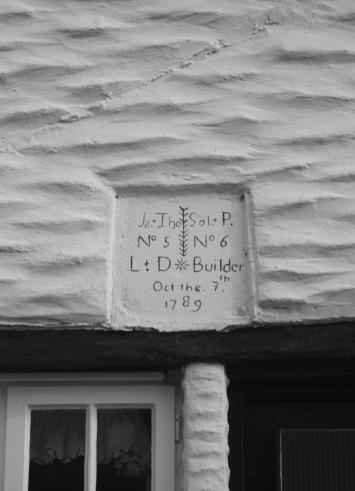 Ja + Tho Sol + P.
Nº 5 Nº 6
L + D Builder
Oct the. 7th.
1789